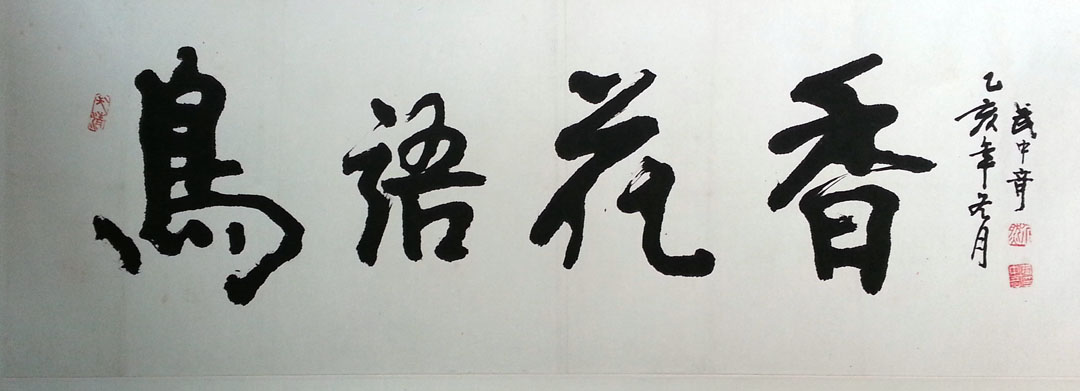 鳥語花香
乙亥年冬月
武中奇